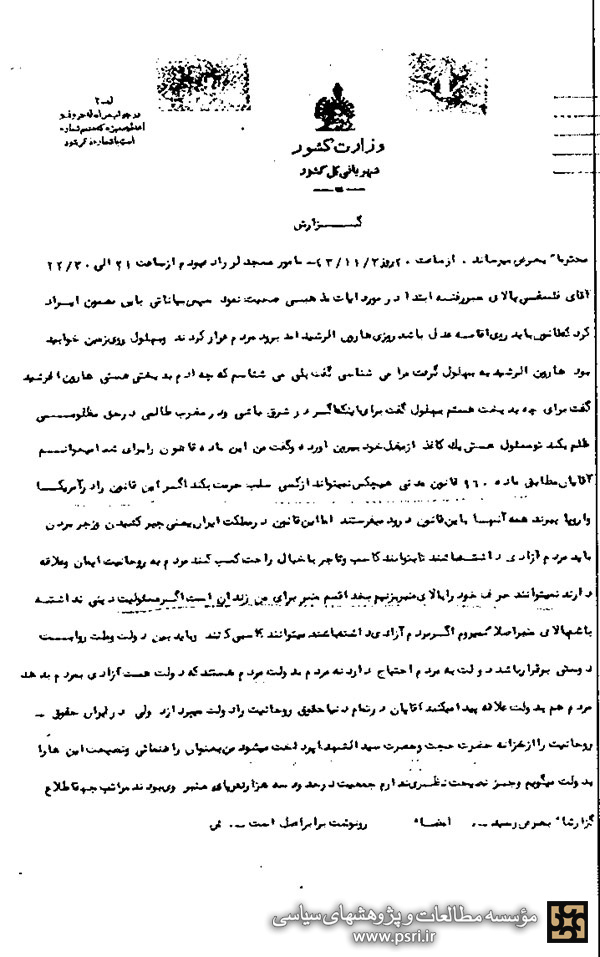 لف ۲
در جواب
وزارت کشور
شهربانی کل کشور
گزارش
محترما" بعرض میرساند . از ساعت ۲۰ روز ۴۳/۱۱/۳ - مامور مسجد لر زاده بودم از ساعت ۲۱ الی ۲۲/۳۰
آقای فلسفی بالای منبر رفته ابتدا در مورد ایات مذهبی صحبت نمود سپس بیاناتی باین مضمون ایراد
کرد قانون باید روی اقامه عدل باشد روزی هارون الرشید امد برود مردم فرار کردند وبهلول روی زمین خوابید
بود هارون الرشید به بهلول گفت مرا می شناسی گفت بلی می شناسم که چه ادم بدبختی هستی هارون الرشید
گفت برای چه بدبخت هستم بهلول گفت برای اینکه اگر در شرق باشی ودر مغرب ظالمی در حق مظلومی
ظلم بکند تومسئول هستی یک کاغذ از بغل خود بیرون اورده وگفت من این ماده قانون را برای شما میخوانم
آقایان مطابق ماده ۹۶۰ قانون مدنی هیچکس نمیتواند از کسی سلب حریت بکند اگر این قانون را در آمریکا
واروپا ببرند همه آنها باین قانون درود میفرستند اما این قانون در مملکت ایران یعنی جیر کشیدن وزجر مردن
باید مردم آزادی داشته باشند تا بتوانند کاسب وتاجر با خیال راحت کسب کنند مردم به روحانیت ایمان وعلاقه
دارند نمیتوانند حرف خود را بالای منبر بزنیم بخدا قسم منبر برای من زندان است اگر مسئولیت دینی نداشته
باشم بالای منبر اصلا نمیروم اگر مردم آزادی داشته باشند میتوانند کاسبی کنند وباید بین دولت وملت روابط
دوستی برقرار باشد دولت به مردم احتیاج دارد نه مردم بدولت مردم هستند که دولت هست آزادی بمردم بدهد
مردم هم بدولت علاقه پیدا میکنند آقایان در تمام دنیا حقوق روحانیت را دولت میپردازد ولی در ایران حقوق -
روحانیت را از خزانه حضرت حجت وحضرت سید الشهدا پرداخت میشود من بعنوان راهنمائی ونصیحت این ها را
بدولت میگویم وجز نصیحت نظری ندارم جمعیت در حدود سه هزار نفر پای منبر وی بودند مراتب جهت اطلاع
گزارشا" بعرض رسید -. امضاء رونوشت برابر اصل است -.
مؤسسه مطالعات و پژوهشهای سیاسی
www.psri.ir